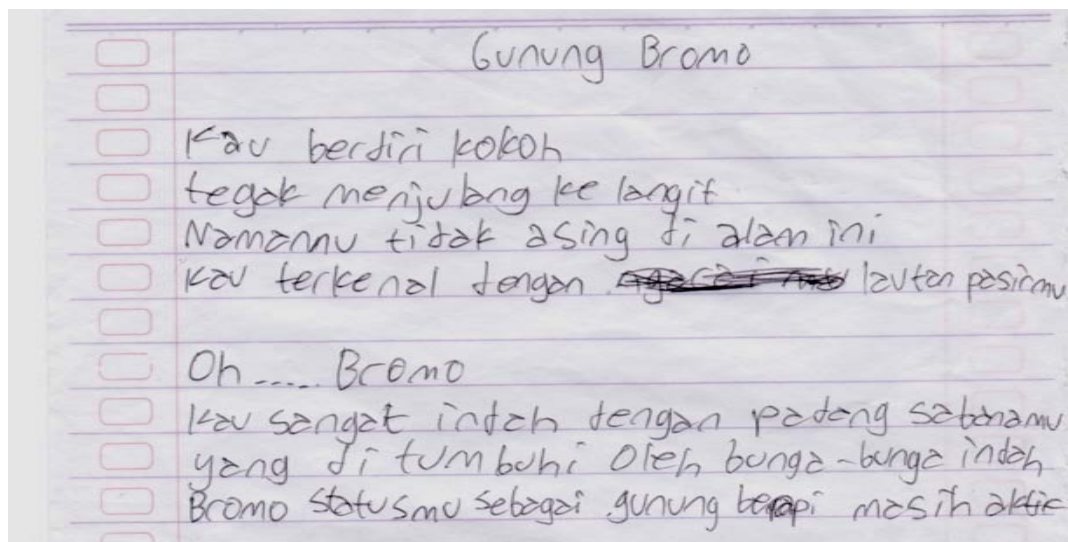 Gunung Bromo
Kau berdiri kokoh
tegak menjulang ke langit
Namamu tidak asing di alam ini
Kau terkenal dengan lautan pasirmu
Oh ..... Bromo
Kau sangat indah dengan padang sabanamu
yang di tumbuhi oleh bunga-bunga indah
Bromo statusmu sebagai gunung berapi masih aktif